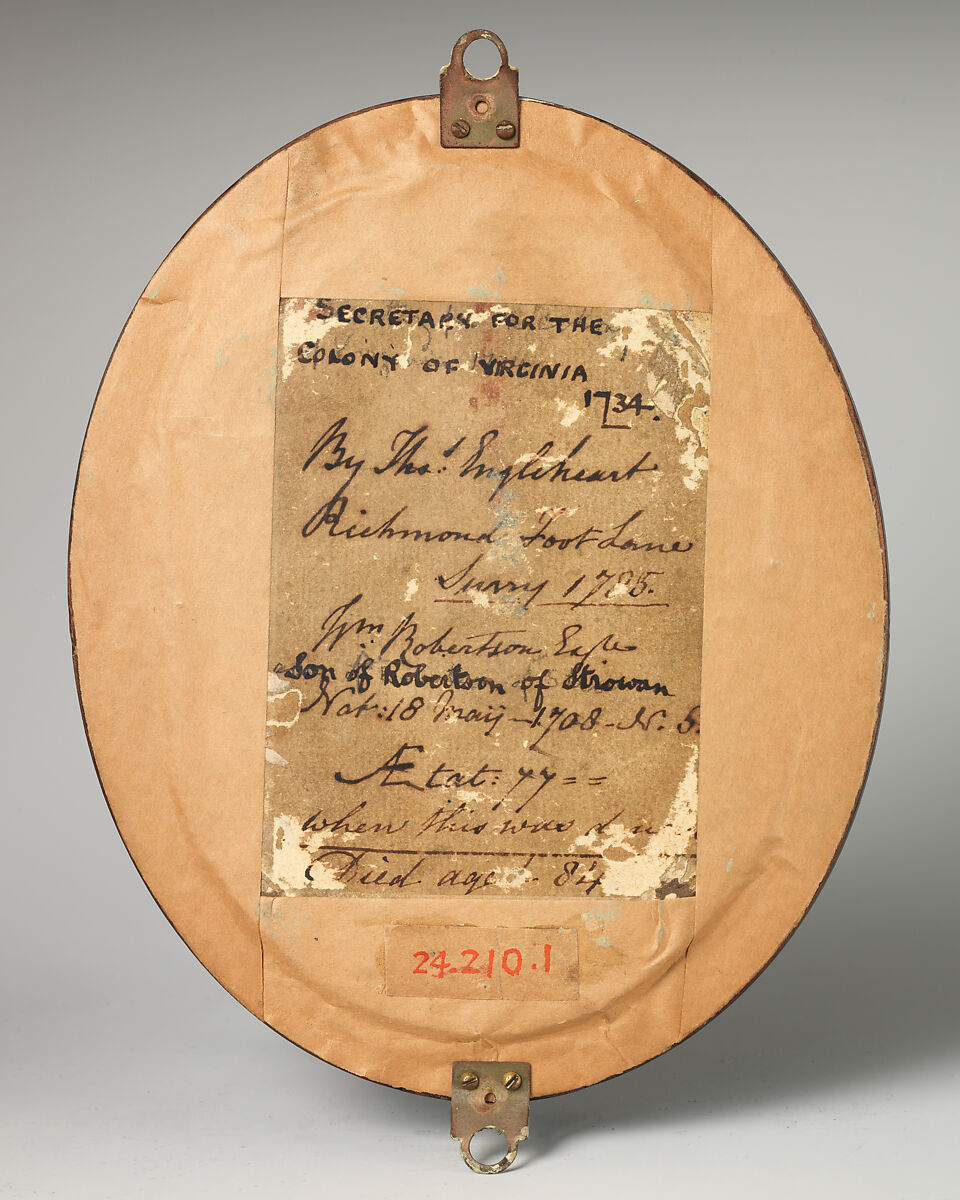 SECRETARY FOR THE
COLONY OF VIRGINIA
1734.
By Thos. Engleheart
Richmond Foot Lane
Surry 1785.
Wm. Robertson Esqre
Son of Robertson of Strowan
Nat: 18 May - 1708 - N. S.
Ætat: 77 = =
when this was
Died aged 84
24.210.1